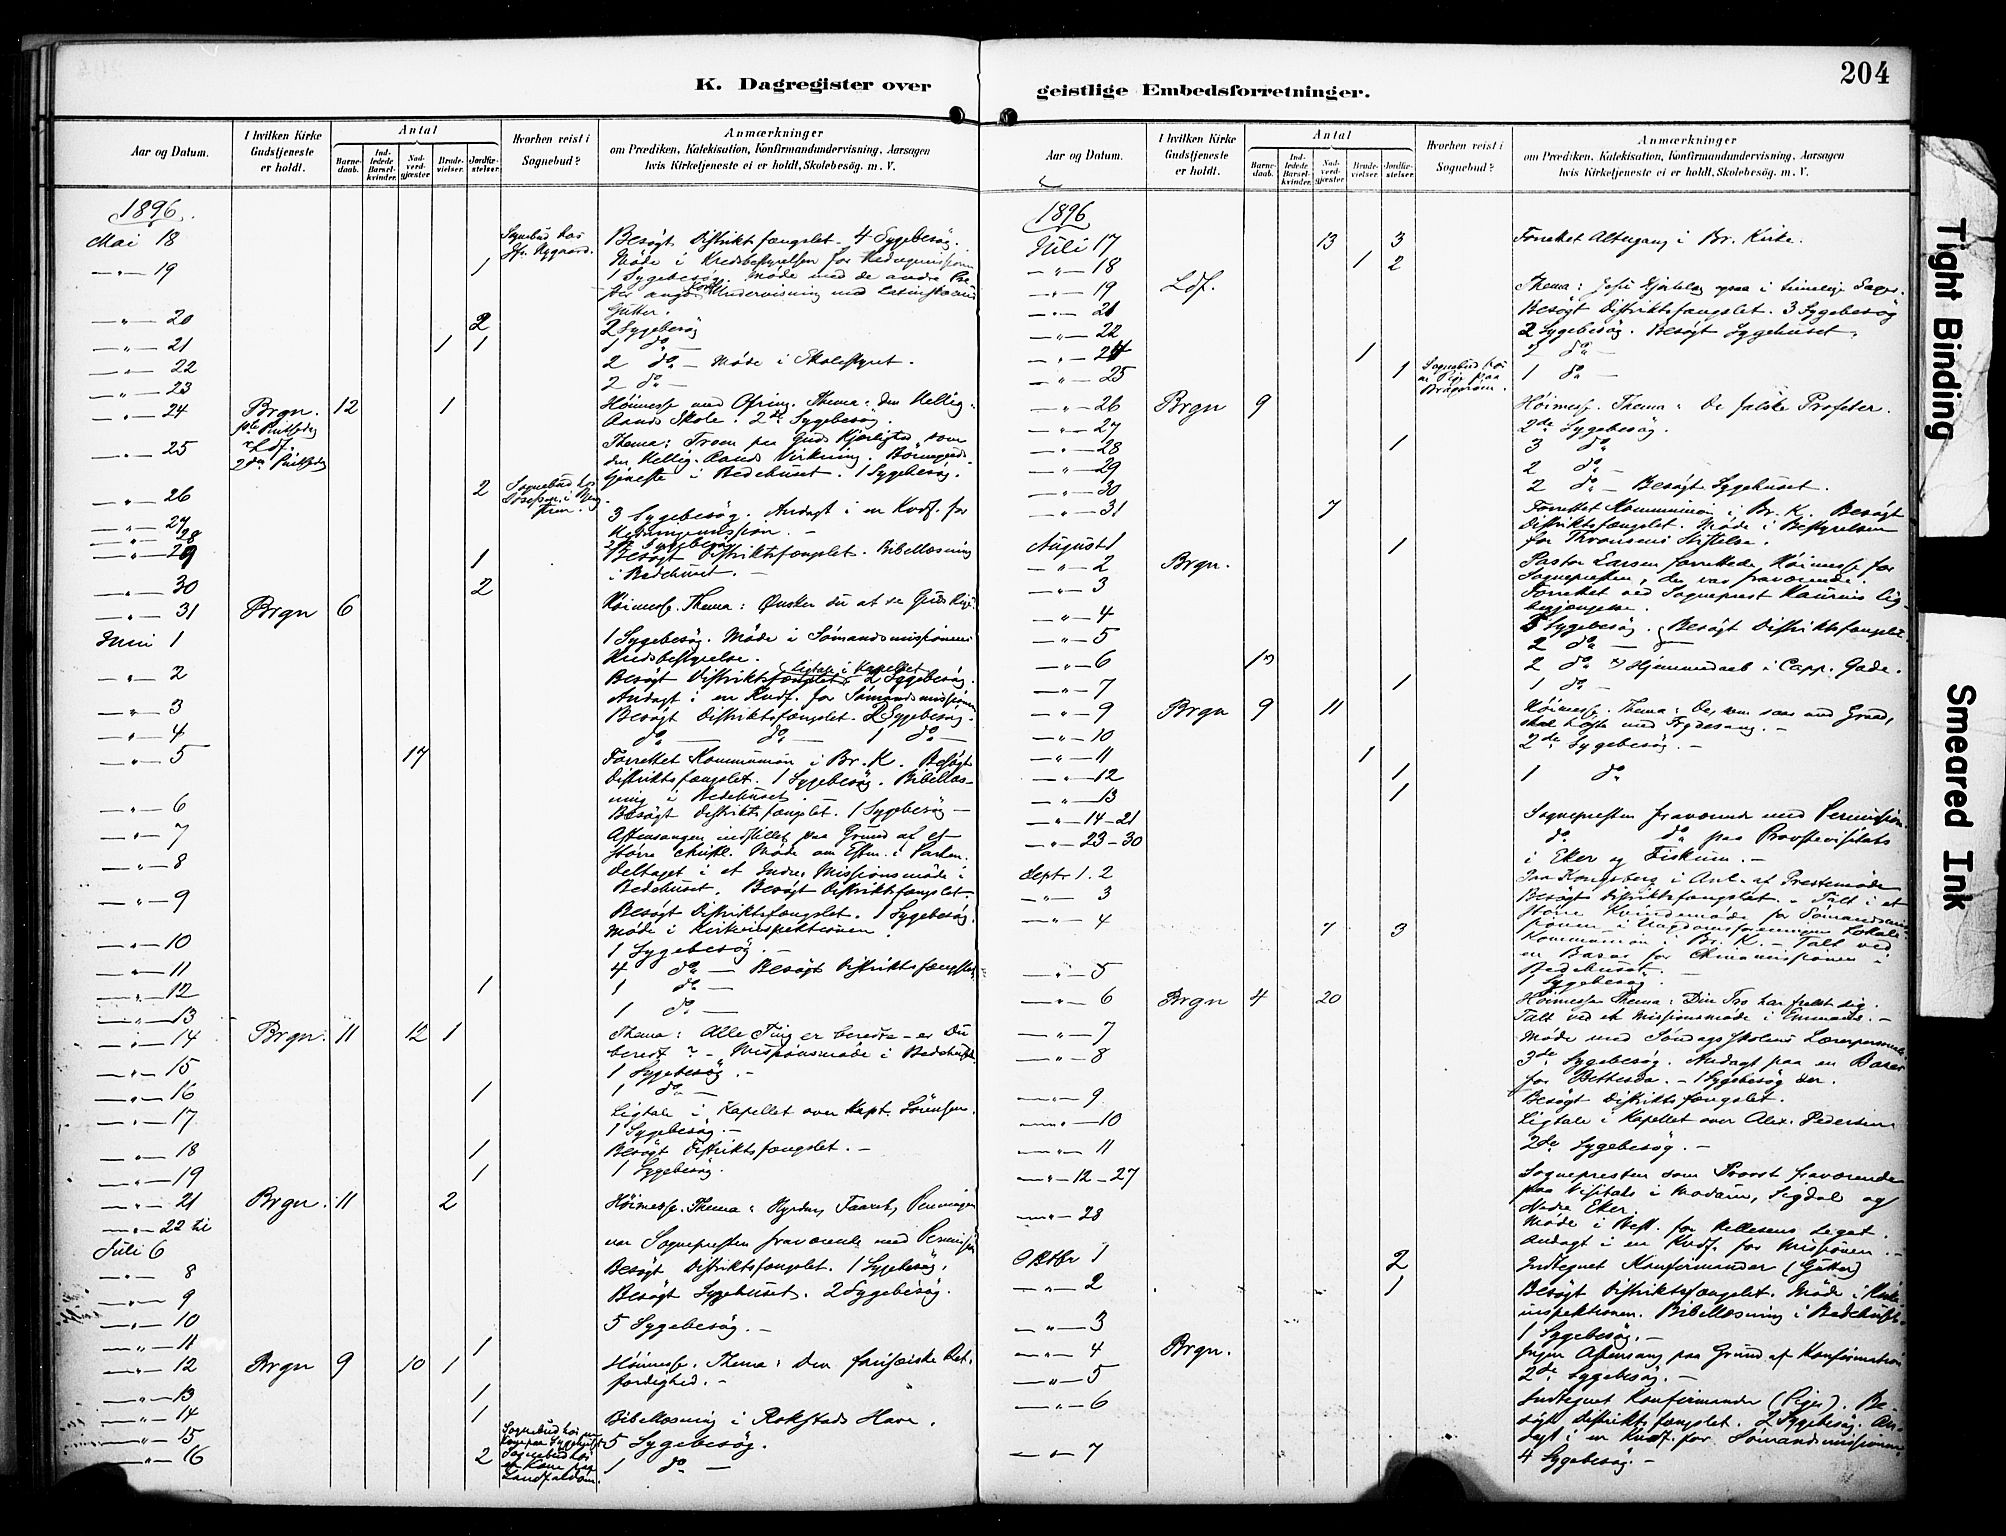 K. Dagregister over
Aar og Datum.
I hvilken Kirke Gudstjeneste er holdt.
Antal
Barne-daab.
Ind-ledede Barsel-kvinder.
Nad-verd-gjæster
Brude-vielser.
Jordfæ-stelser.
Hvorhen reist i Sognebud?
Anmærkninger
om Prædiken, Katekisation, Konfirmandundervisning, Aarsagen
hvis Kirketjeneste ei er holdt, Skolebesøg. m. V.
1896.
Mai 18 Sognebud hos Besøgt Distriktsfængslet. 4 Sygebesøg.
— " — 19 1 Møde i Kredsbestyrelsen for
1 Sygebesøg. Møde med de andre
Undervisning med
Gutter.
— " — 20 2 2 Sygebesøg
— " — 21 1 1 1 do —
— " — 22 2 do — Møde i Skolestyret.
— " — 23 2 do —
— " — 24 Brgn. 12 1 Høimesse med Ofring. Thema: den Hellig-
Aands Skole. 2 Sygebesøg.
— " — 25 Ldf. Thema: Troen paa Guds Kjærlighed som
den Hellig-Aands Virkning.
2den i Bedehuset. 1 Sygebesøg.
— " — 26 2 Sognebud hos
— " — 27 3 Sygebesøg. Andagt i en Kvdf. for
— " — 28
— " — 29 1 Besøgt Distriktsfængslet. Bibellæsning
i Bedehuset. —
— " — 30 2
— " — 31 Brgn 6 Høimesse. Thema: Ønsker du at se Guds
Juni 1 1 Sygebesøg. Møde i Sømandsmissionens
Kredsbestyrelse.
— " — 2 Ligtale i Kapellet
Besøgt Distriktsfængslet. 2 Sygebesøg.
— " — 3 Andagt i en Kvdf. for Sømandsmissionen
Besøgt Distriktsfængslet. 2 Sygebesøg.
— " — 4 do — do — 1 do —
— " — 5 17 Forrettet Kommunion i Br. K. Besøgt
Distriktsfængslet. 1 Sygebesøg. Bibellæs-
ning i Bedehuset.
— " — 6 Besøgt Distriktsfængslet. 1 Sygebesøg —
— " — 7 Aftensangen indstillet paa Grund af et
større christl. Møde om Eftm. i Parken.
— " — 8 Deltaget i et Indre Missionsmøde i
Bedehuset. Besøgt Distriktsfængslet.
— " — 9 Besøgt Distriktsfængslet. 1 Sygebesøg.
Møde i Kirkeinspektionen.
— " — 10 1 Sygebesøg —
— " — 11 4 do — Besøgt Distriktsfængslet
— " — 12 1 1 do —
— " — 13 1 do —
— " — 14 Brgn. 11 12 1 Thema: Alle Ting er beredte – er Du
beredt? – Missionsmøde i Bedehuset
— " — 15 1 Sygebesøg. —
— " — 16 1 1 do —
— " — 17 Ligtale i Kapellet over Kapt. Sørensen.
1 Sygebesøg. —
— " — 18 1 Besøgt Distriktsfængslet. —
— " — 19 1 1 Sygebesøg.
— " — 21 Brgn. 11 2 Høimesse. Thema: Hyrden, Faaret, Penningen
— " — 22 til
Juli 6 var Sognepresten fraværende med Permission
— " — 8 Besøgt Distriktsfængslet. 1 Sygebesøg.
— " — 9 Besøgt Sygehuset. 2 Sygebesøg.
— " — 10 5 Sygebesøg. —
— " — 11 1
— " — 12 Brgn 9 10 1 Høimesse. Thema: Den farisæiske Ret-
færdighed. —
— " — 13 1
— " — 14 1 Bibellæsning i Rokstads Have.
— " — 15 5 Sygebesøg.
— " — 16 2 Sognebud hos 1 do —
geistlige Embedsforretninger.
204
Aar og Datum.
I hvilken Kirke Gudstjeneste er holdt.
Antal
Barne-daab.
Ind-ledede Barsel-kvinder.
Nad-verd-gjæster
Brude-vielser.
Jordfæ-stelser.
Hvorhen reist i Sognebud?
Anmærkninger
om Prædiken, Katekisation, Konfirmandundervisning, Aarsagen
hvis Kirketjeneste ei er holdt, Skolebesøg. m. V.
1896
Juli 17 13 3 Forrettet Altergang i Br. Kirke.
— " — 18 1 2
— " — 19 Ldf. Thema: Jesu Hjertelag ogsaa i timelige Sager.
— " — 21 Besøgt Distriktsfængslet. 3 Sygebesøg
— " — 22 2 Sygebesøg. Besøgt Sygehuset.
— " — 24 1 2 do —
— " — 25 1 Sognebud hos en Pige paa 1 do —
— " — 26 Brgn 9 Høimesse. Thema: De falske Profeter.
— " — 27 2de Sygebesøg.
— " — 28 1 3 do
— " — 29 2 do —
— " — 30 2 do — Besøgt Sygehuset.
— " — 31 7 Forrettet Kommunion i Br. K. Besøgt
Distriktsfængslet. Møde i Bestyrelsen
for Thronsens Stiftelse.
August 1 1
— " — 2 Brgn. Pastor Larsen forrettede Høimesse for
Sognepresten, der var fraværende.
— " — 3 Forrettet ved Sogneprest Kaurins Lig-
begjængelse.
— " — 4 5 Sygebesøg. Besøgt Distriktsfængslet.
— " — 5 2 do —
— " — 6 1 2 do Hjemmedaab i Capp. Gade.
— " — 7 1 1 do —
— " — 9 Brgn 9 11 Høimesse. Thema: De, som saar med Graad,
skal høste med Frydesang. —
— " — 10 2de Sygebesøg. —
— " — 11 1
— " — 12 1 1 do
— " — 13 1
— " — 14–21 Sognepresten fraværende med Permission.
— " — 23–30 do do paa Provstevisitats
i Eker og Fiskum. —
Septr 1. 2 Paa Kongsberg i Anl. af Prestemøde
— " — 3 Besøgt Distriktsfængslet. – Talt i et
større Kvindemøde for Sømandsmis-
sionen i Ungdomsforeningens Lokale.
— " — 4 7 3 Kommunion i Br. K. – Talt ved
en Basar for Chinamissionen i
Bedehuset.
— " — 5 1 Sygebesøg
— " — 6 Brgn 4 20 Høimesse Thema: Din Tro har frelst dig.
Talt ved et Missionsmøde i Emmaus. —
— " — 7 Møde med Søndagsskolens Lærerpersonale.
— " — 8 3de Sygebesøg. Andagt paa en Basar
for Bethesda. – 1 Sygebesøg der.
— " — 9 Besøgt Distriktsfængslet.
— " — 10 Ligtale i Kapellet over Alex. Pedersen.
— " — 11 2de Sygebesøg. —
— " — 12–27 Sognepresten som Provst fraværende
paa Visitats i Modum, Sigdal og
Nedre Eker.
— " — 28 Møde i Best. for Kellesens Legat.
Andagt i en Kvdf. for Missionen. —
Oktbr 1 2 Indtegnet Konfirmander (Gutter)
— " — 2 1 Besøgt Distriktsfængslet. Møde i Kirke-
inspektionen. Bibellæsning i Bedehuset.
— " — 3 1 Sygebesøg. —
— " — 4 Brgn. Ingen Aftensang paa Grund af Konfirmation
— " — 5 2de Sygebesøg. —
— " — 6 Indtegnet Konfirmander (Piger). Be-
søgt Distriktsfængslet. 2 Sygebesøg. An-
dagt i en Kvdf. for Sømandsmissionen.
— " — 7 4 Sygebesøg. —
Tight Binding
Smeared Ink